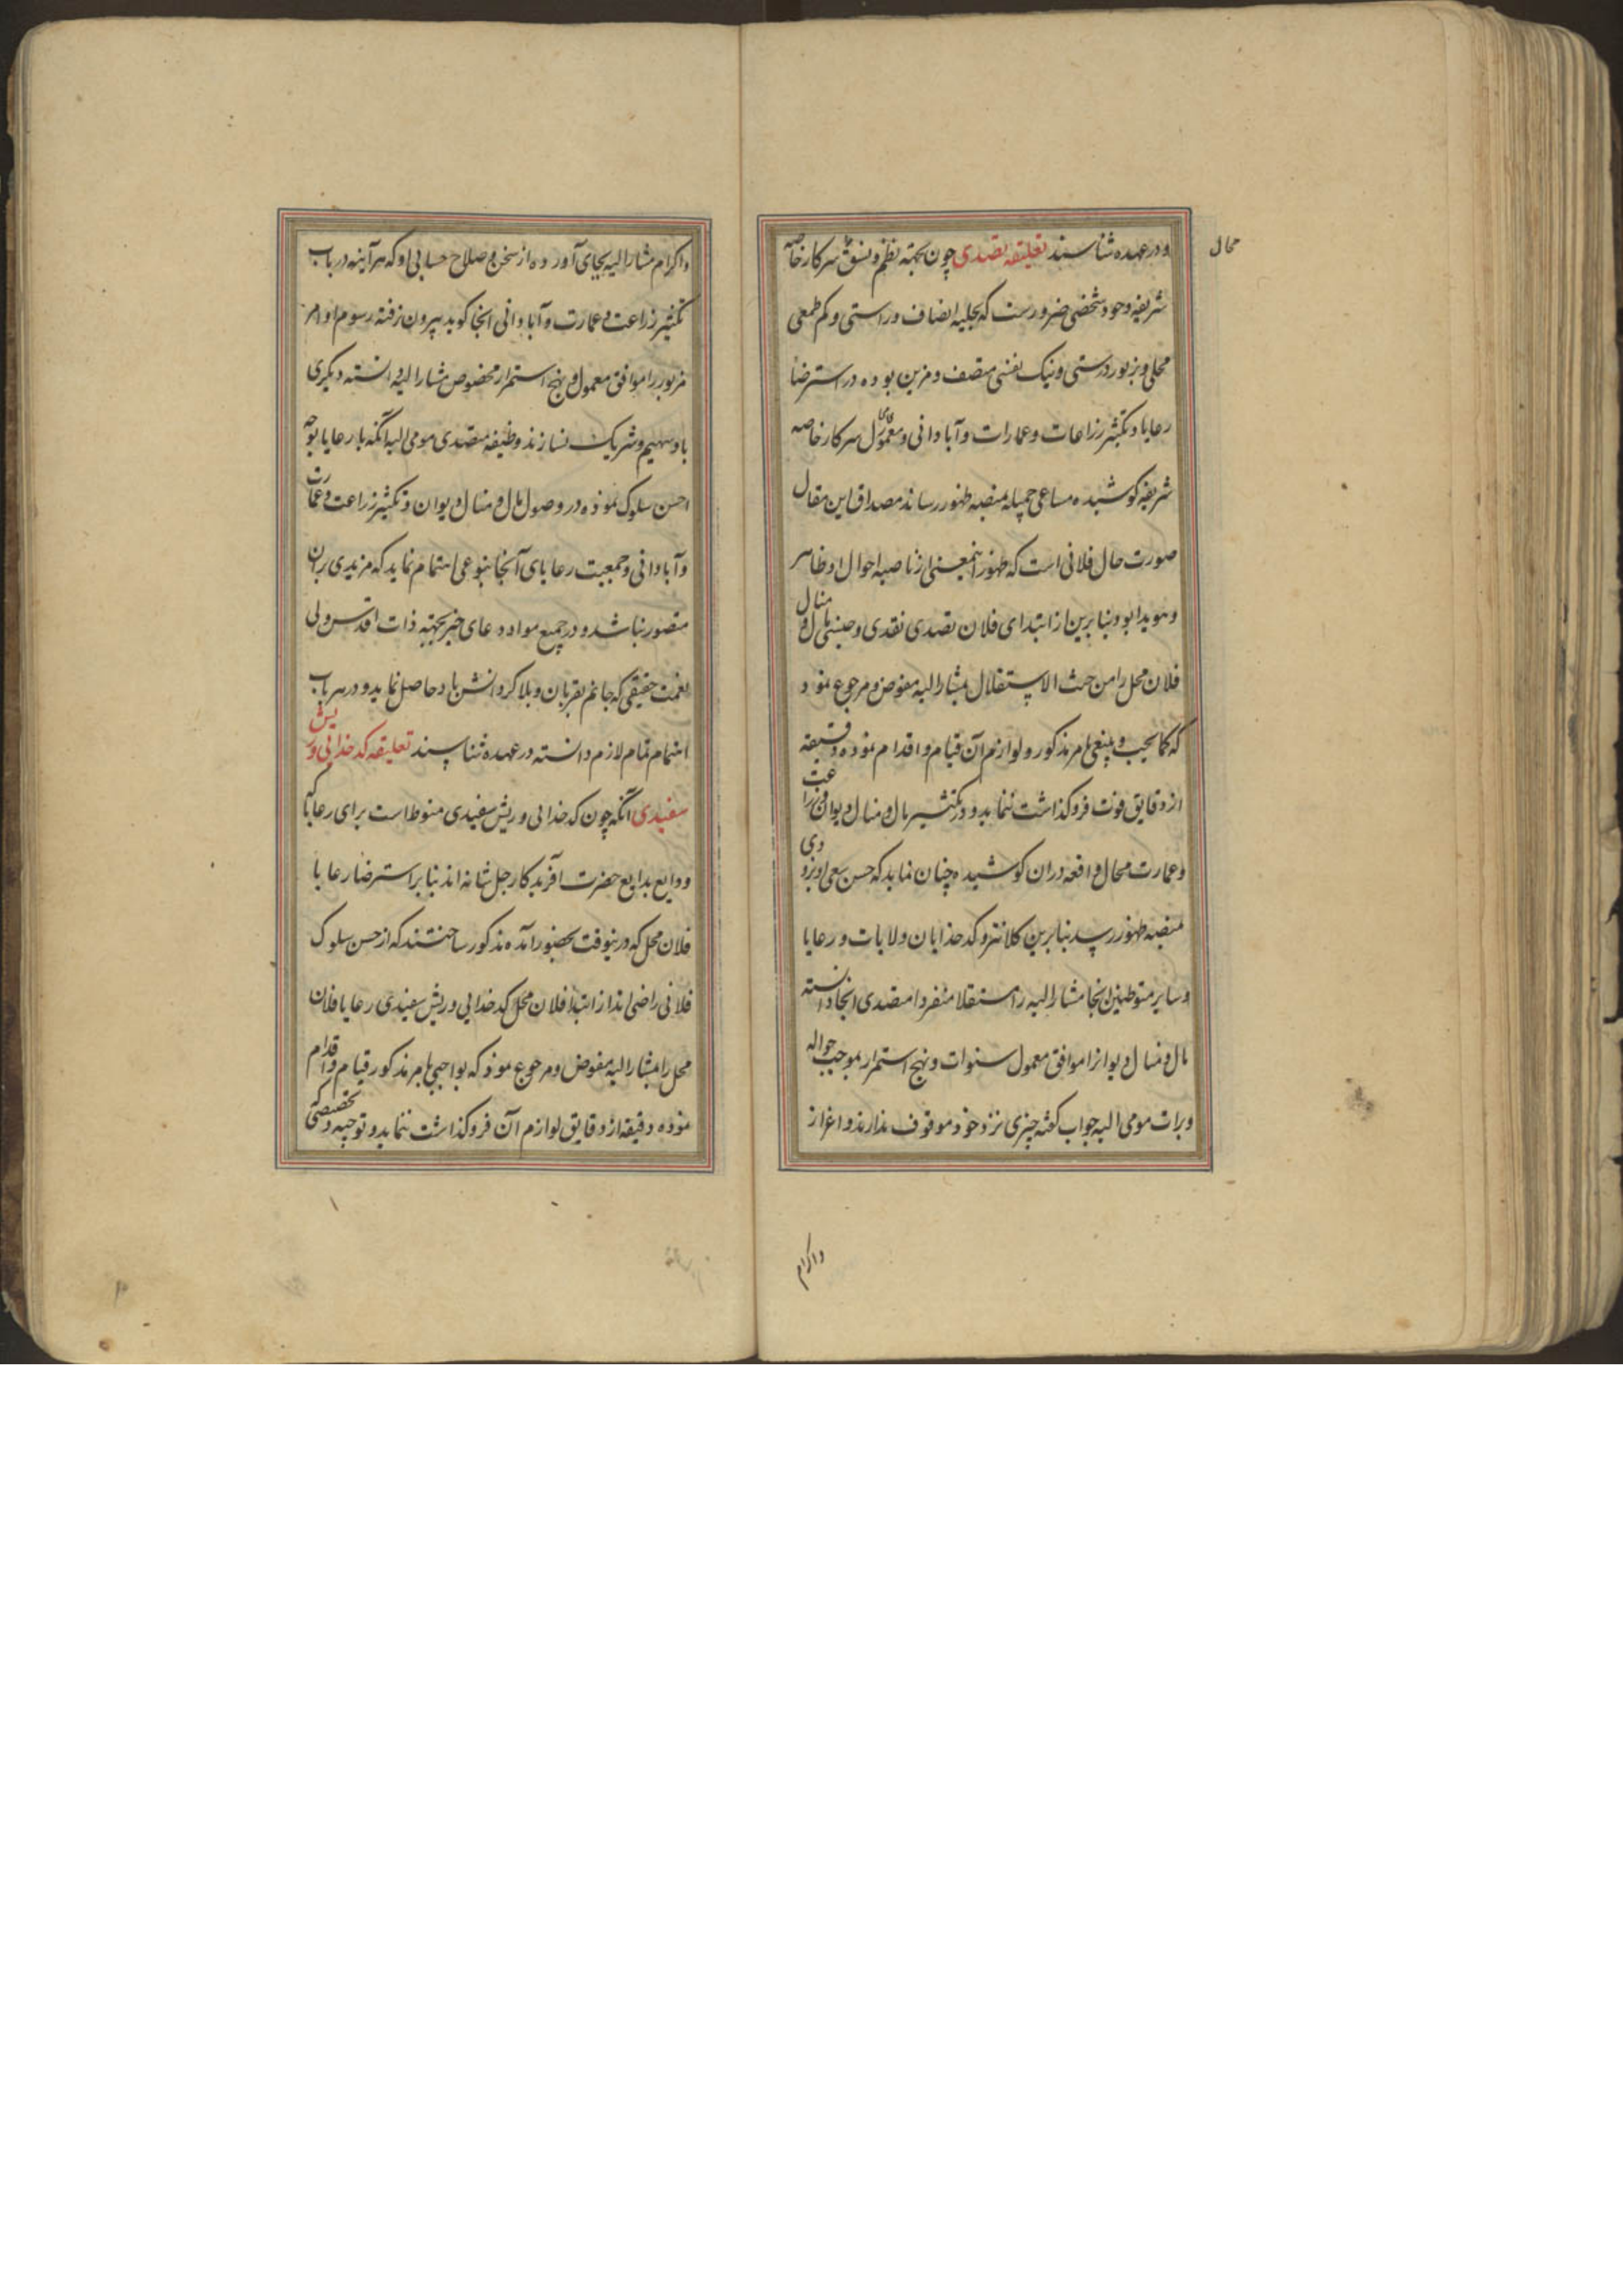 و در عهده شناسند تعلیقه تصدی چون بجهته نظم و نسق سرکار خاصه
محال
شریفه وجود شخصی ضرورست که بحلیه انصاف و راستی و کم طمعی
محلی و بزیور درستی و نیک نفسی متصف و مزین بوده در استرضا
رعایا و تکثیر زراعات و عمارات و آبادانی و معموری محال سرکار خاصه
شریفه کوشیده مساعی جمیله بمنصه ظهور رساند مصداق این مقال
صورت حال فلانی است که ظهور اینمعنی از ناصیه احوال او ظاهر
و هویدا بود بنابرین از ابتدای فلان تصدی نقدی و جنسی مال و منال
فلان محل را من حیث الاستقلال بمشارالیه مفوض و مرجوع نمود
که کما یجب و ینبغی بامر مذکور و لوازم آن قیام و اقدام نموده دقیقه
از دقایق فوت و فروکذاشت ننماید و در تکثیر مال و منال دیوانی و زراعت
و عمارت محال واقعه در آن کوشیده چنان نماید که حسن سعی او بزودی
بمنصه ظهور رسد بنابرین کلانتر و کدخدایان ولایات و رعایا
و سایر متوطنین انجا مشارالیه را مستقلا منفردا متصدی انجا دانسته
مال و منال دیوانرا موافق معمول سنوات و نهج استمرار بموجب حواله
و برات مومی الیه جواب کفته چیزی نزد خود موقوف ندارند و اعزاز
واکرام
و اکرام مشارالیه بجای آورده از سخن و صلاح حسابی او که هرآینه در باب
تکثیر زراعت و عمارت و آبادانی انجا کوید بیرون نرفته رسوم امر
مزبور را موافق معمول و نهج استمرار مخصوص مشارالیه دانسته دیکری
با و سهیم و شریک نسازند وظیفه متصدی مومی الیه انکه با رعایا بوجه
احسن سلوک نموده در وصول مال و منال دیوان و تکثیر زراعت و عمارت
و آبادانی و جمعیت رعایای آنجا بنوعی اهتمام نماید که مزیدی بران
متصور نباشد و در جمیع مواد دعای خیر بجهته ذات اقدس ولی
نعمت حقیقی که جانم بقربان و بلا کردانش باد حاصل نماید و در هر باب
اهتمام تمام لازم دانسته در عهده شناسند تعلیقه کدخدائی و ریش
سفیدی آنکه چون کدخدائی و ریش سفیدی منوط است برای رعایا که
ودایع بدایع حضرت آفریدکار جل شانه اند بنا بر استرضا رعایا
فلان محل که درینوقت بحضور آمده مذکور ساختند که از حسن سلوک
فلانی راضی اند از ابتدا فلان محل کدخدایی و ریش سفیدی رعایا فلان
محل را بمشارالیه مفوض و مرجوع نموذ که بواجبی بامر مذکور قیام و اقدام
نموده دقیقه از دقایق لوازم آن فروکذاشت ننماید و توجیه و تخصیصی که